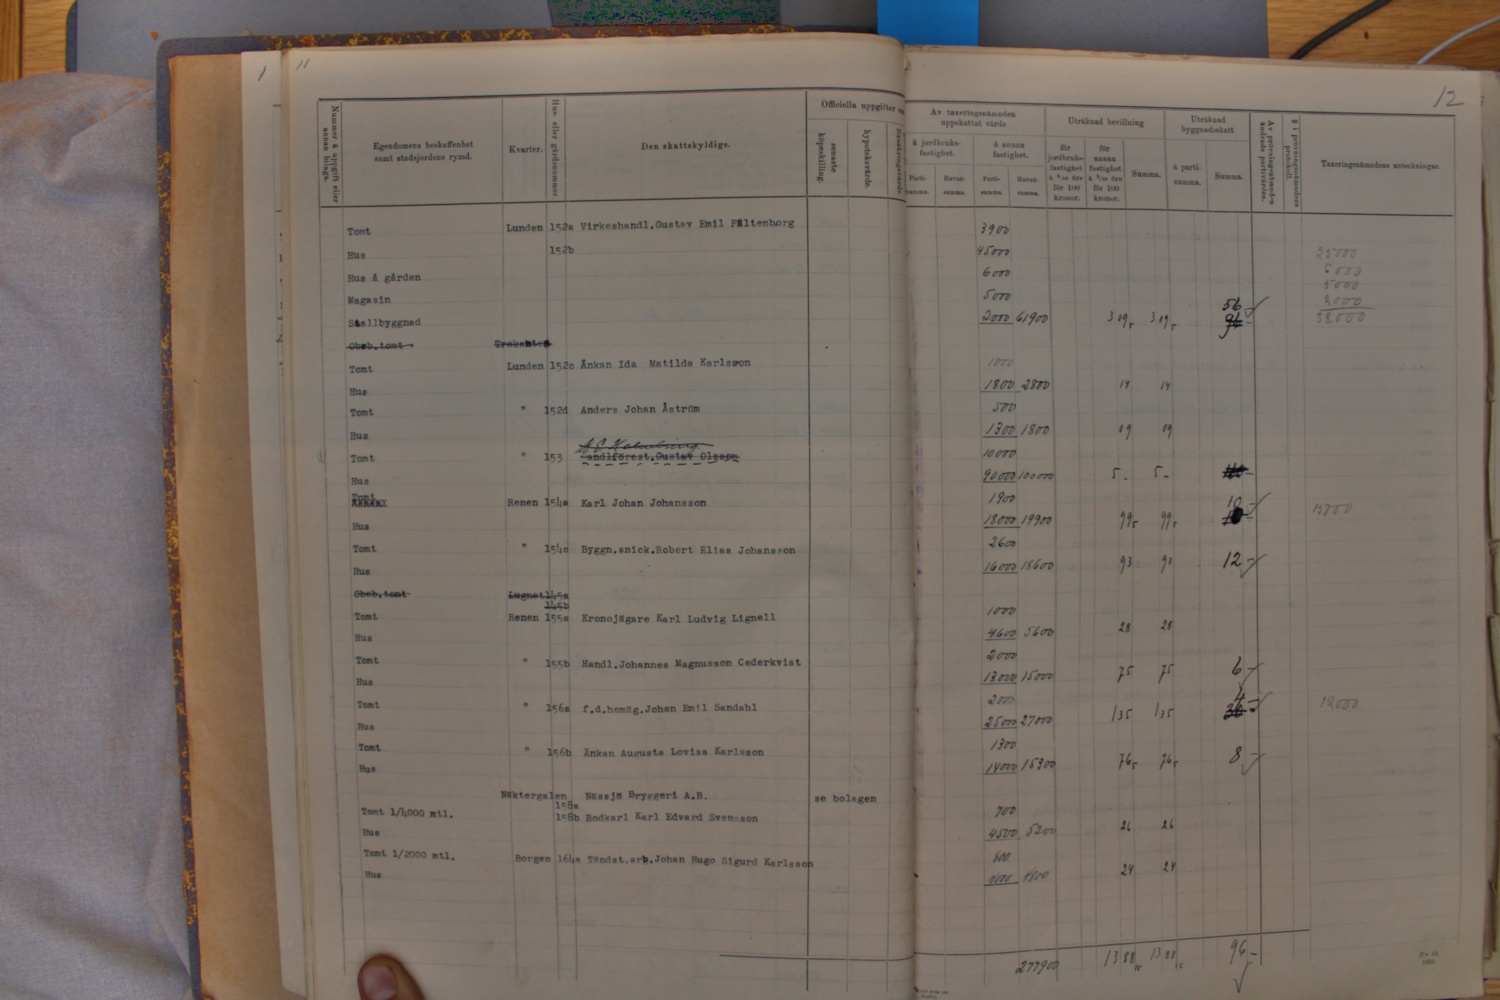 11
12
Nummer å uppgift eller annan bilaga.
Egendomens beskaffenhet samt stadsjordens rymd.
Kvarter.
Hus- eller gårdsnummer
Den skattskyldige.
Officiella uppgifter om
senaste köpeskilling.
hypoteksvärde.
Av taxeringsnämnden uppskattat värde
å jordbruksfastighet.
å annan fastighet.
Parti-summa.
Huvud-summa.
Parti-summa.
Huvud-summa.
Uträknad bevillning
för jordbruksfastighet
för annan fastighet
för 100 kronor.
för 100 kronor.
Summa.
Uträknad byggnadsskatt
å parti-summa.
Summa.
Av prövningsnämnden ändrade partivärden.
§ i prövningsnämndens protokoll.
Taxeringsnämndens anteckningar.
Tomt Lunden 152a Virkeshandl.Gustav Emil Fältenborg 3900
Hus 152b 45000 25000
Hus å gården 6000 6000
Magasin 5000 5000
Stallbyggnad 2000 61900 309,5 309,5 56 2000
38000
Obeb.tomt Trekanten
Tomt Lunden 152c Änkan Ida Matilda Karlsson 1000
Hus 1800 2800 14 14
Tomt " 152d Anders Johan Åström 500
Hus 1300 1800 09 09
Tomt " 153 Landtförest.Gustav Olsson 10000
Hus 90000 100000 5- 5-
Tomt Renen 154a Karl Johan Johansson 1900 10
Hus 18000 19900 99,5 99,5
Tomt " 154c Byggn.snick.Robert Elias Johansson 2600
Hus 16000 18600 93 93 12-
Obeb.tomt Lugnet 145a
145b
Tomt Renen 155a Kronojägare Karl Ludvig Lignell 1000
Hus 4600 5600 28 28
Tomt " 155b Handl.Johannes Magnusson Cederkvist 2000
Hus 13000 15000 75 75 6-
Tomt " 156a f.d.hemäg.Johan Emil Sandahl 2000 4-
Hus 25000 27000 135 135
Tomt " 156b Änkan Augusta Lovisa Karlsson 1300
Hus 14000 15300 76,5 76,5 8-
Näktergalen Nässjö Bryggeri A.B. se bolagen
158a
Tomt 1/4000 mtl. 158b Bodkarl Karl Edvard Svensson 700
Hus 4500 5200 26 26
Tomt 1/2000 mtl. Borgen 164a Tändst.arb.Johan Hugo Sigurd Karlsson 800
Hus 4000 4800 24 24
277900 1388 1388 96-